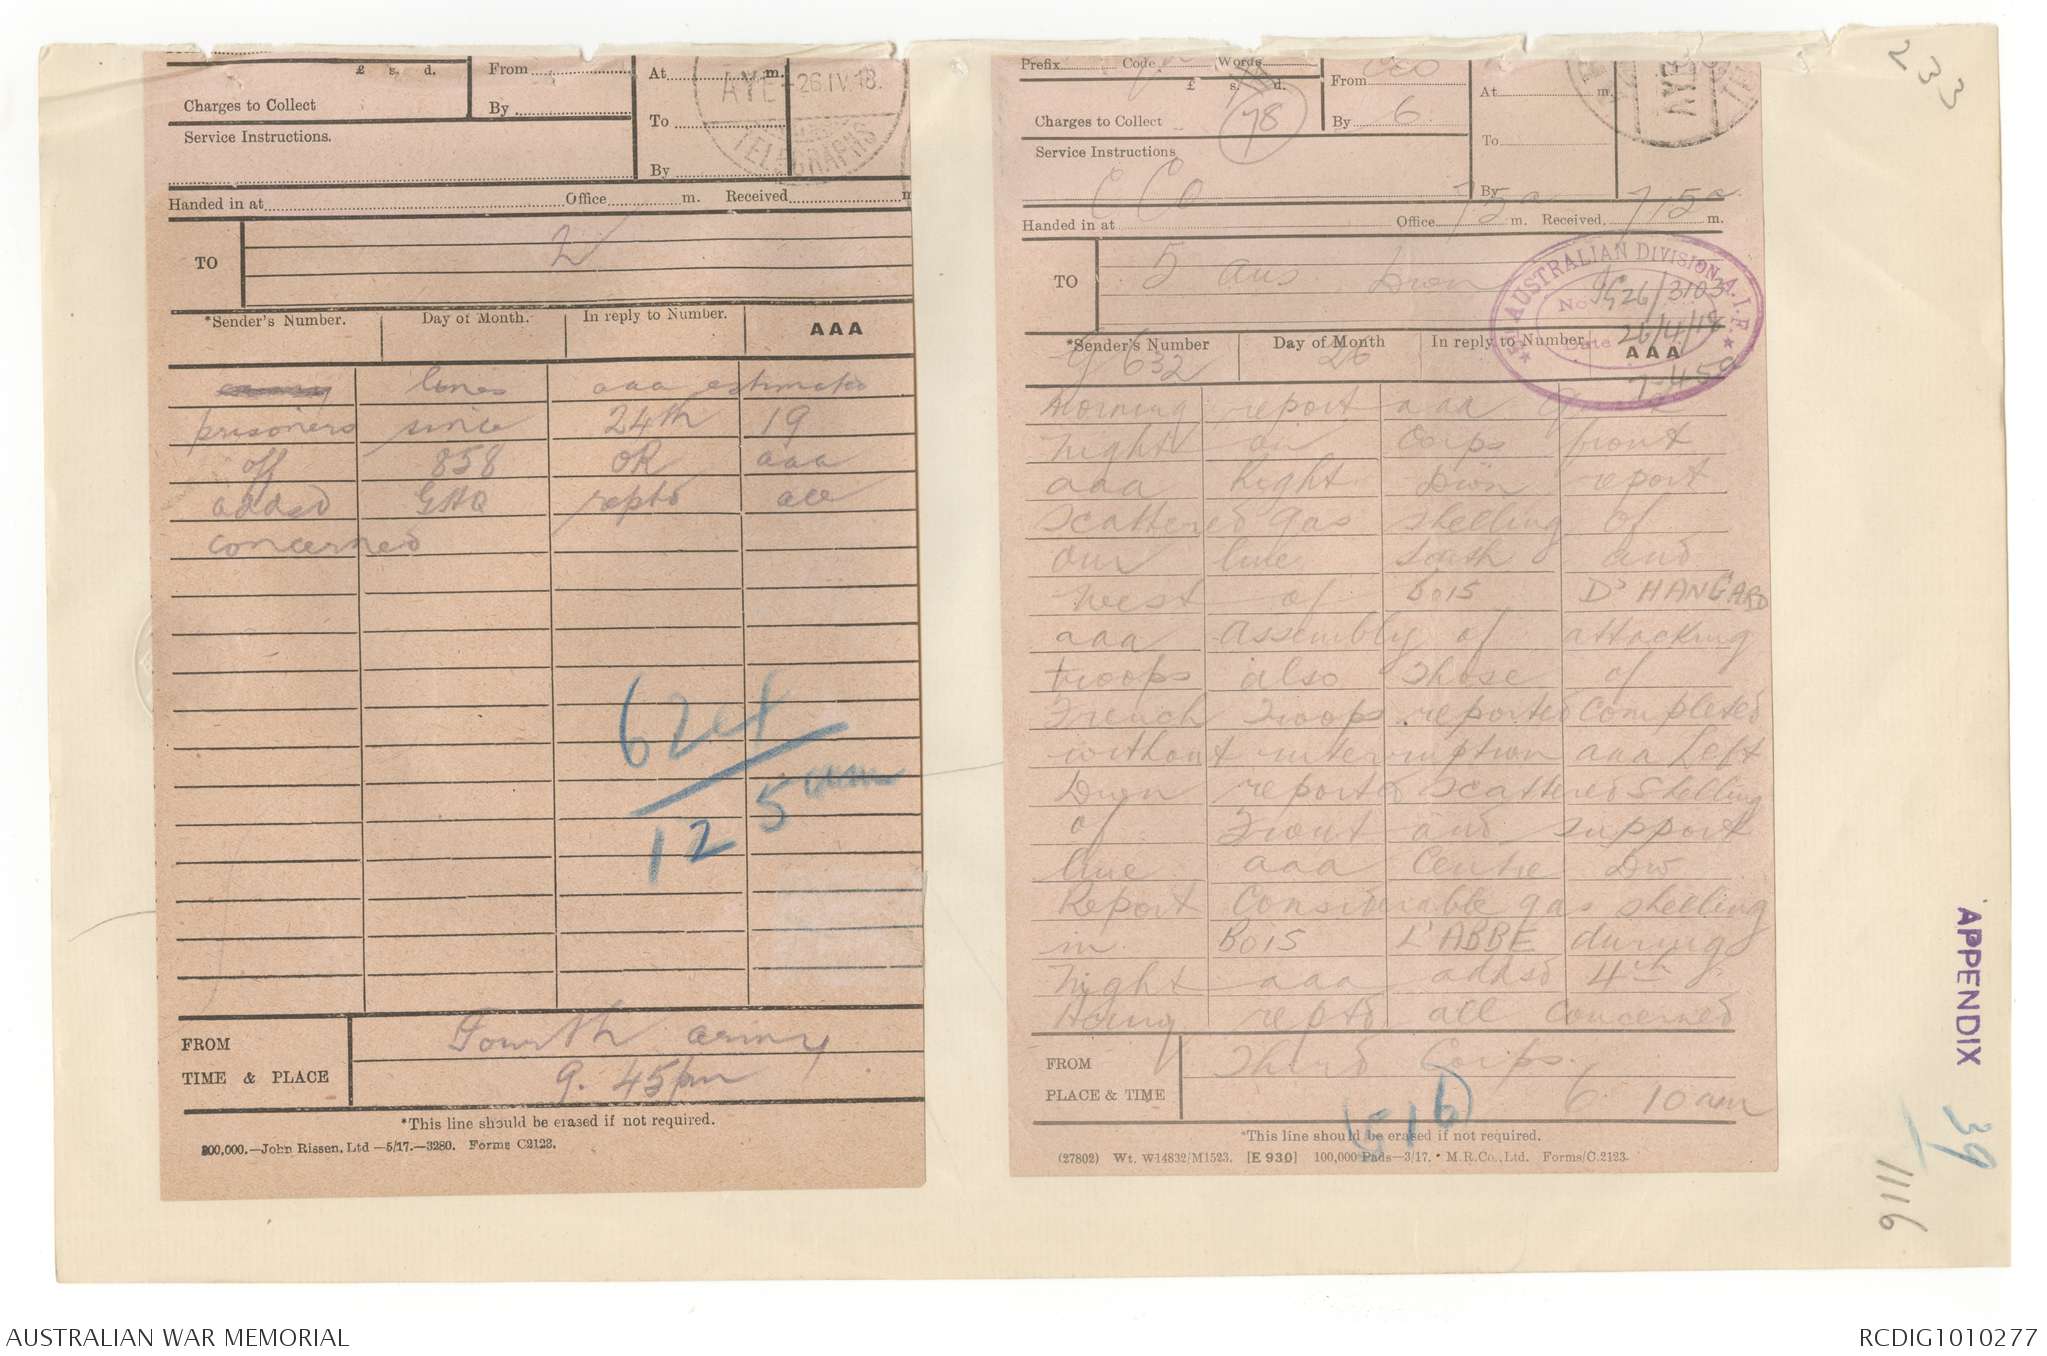 £ s. d.
Charges to Collect
Service Instructions.
From
By
At m.
To
By
AYE 26.IV.18.
TELEGRAPHS
Handed in at Office m. Received m
TO
2
*Sender's Number. Day of Month. In reply to Number. AAA
lines aaa estimated
prisoners since 24th 19
off 858 OR aaa
added GHQ repto all
concerned
62et
12 5 am
FROM
TIME & PLACE
Fourth army
9. 45pm
*This line should be erased if not required.
200,000.—John Rissen, Ltd —5/17.—3280. Forms C2123.
Prefix Code Words
£ s. d.
78
Charges to Collect
Service Instructions
From
By 6
At m.
To
By
CCO
Handed in at Office 7 5a m. Received. 7.5a m.
TO
5 aus Divn
5th AUSTRALIAN DIVISION A.I.F.
No. G26/3103
Date 26/4/18
7-45a
*Sender's Number Day of Month In reply to Number AAA
G 632 26
Morning report aaa Quiet
night on Corps front
aaa Right Divn report
scattered gas shelling of
our line South and
West of BOIS D'HANGARD
aaa Assembly of attacking
troops also those of
French Troops reported completed
without interruption aaa Left
Divn reported scattered shelling
of Front and support
line aaa Centre Div
Report Considerable gas shelling
in BOIS L'ABBE during
night aaa addsd 4th
Army repto all concerned
FROM
PLACE & TIME
Third Corps.
6 10am
516
*This line should be erased if not required.
(27802) Wt. W14832/M1523. [E 930] 100,000 Pads—3/17. M.R.Co., Ltd. Forms/C.2123.
233
APPENDIX
39
1116
AUSTRALIAN WAR MEMORIAL
RCDIG1010277